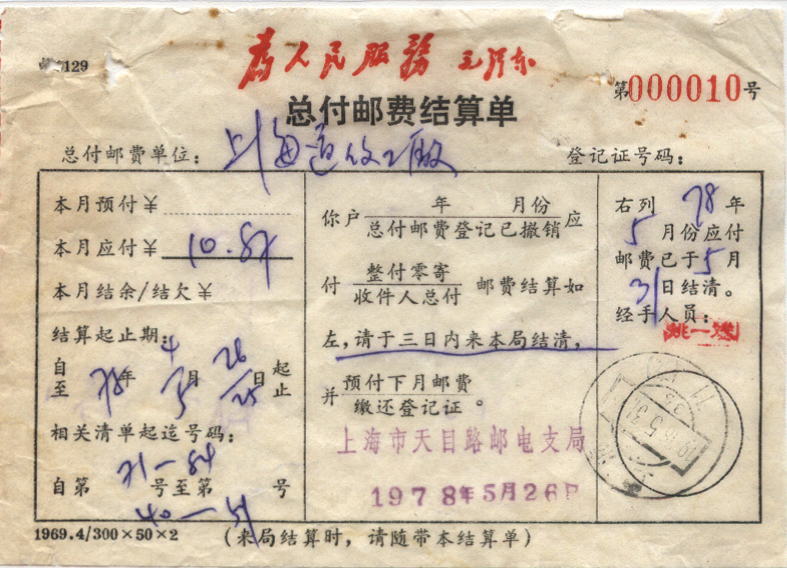 129
為人民服務 毛泽东
第000010号
总付邮费结算单
总付邮费单位：上海
登记证号码：
本月预付￥
本月应付￥ 10.87
本月结余/结欠￥
结算起止期：
自 78年 4月 26日 起
至 5 25 止
相关清单起迄号码：
自第 71—84 号至第 号
你户 年 月份 应
总付邮费登记已撤销
付 整付零寄 邮费结算如
收件人总付
左，请于三日内来本局结清，
并 预付下月邮费
缴还登记证 。
上海市天目路邮电支局
1978年5月26日
右列 78 年
5 月份应付
邮费已于5月
31日结清。
经手人员：
1969.4/300×50×2
（来局结算时，请随带本结算单）